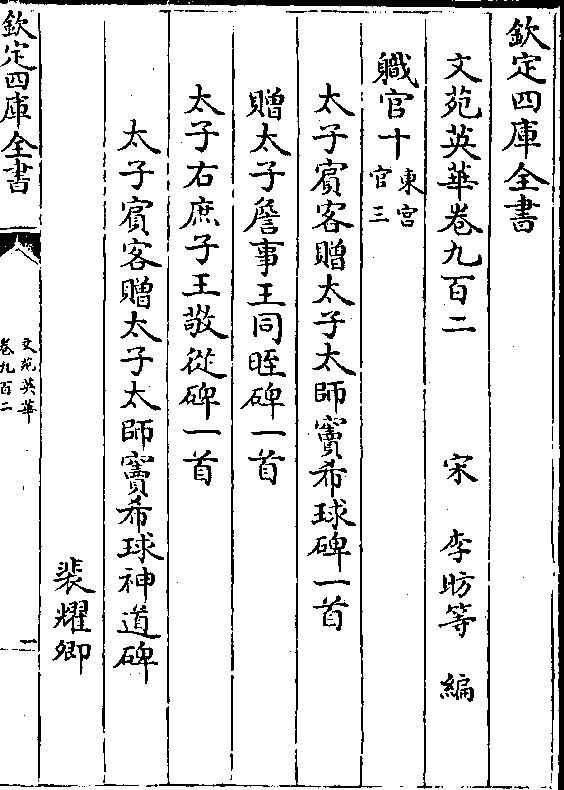 欽定四庫全書
文苑英華卷九百二　宋　李昉等　編
職官十東宮官三
太子賓客贈太子太師竇希球碑一首
贈太子詹事王同晊碑一首
太子右庶子王敬從碑一首
太子賓客贈太子太師竇希球神道碑
裴耀卿
欽定四庫全書
文苑英華
卷九百二
一